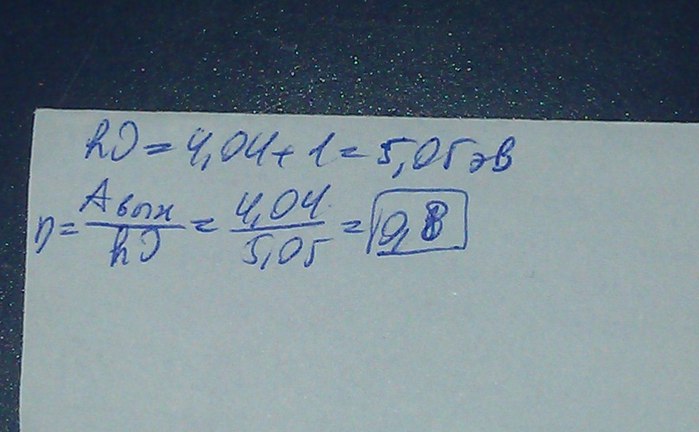 hν = 4,04 + 1 = 5,05 эВ
η = Aвых / hν = 4,04 / 5,05 = 0,8